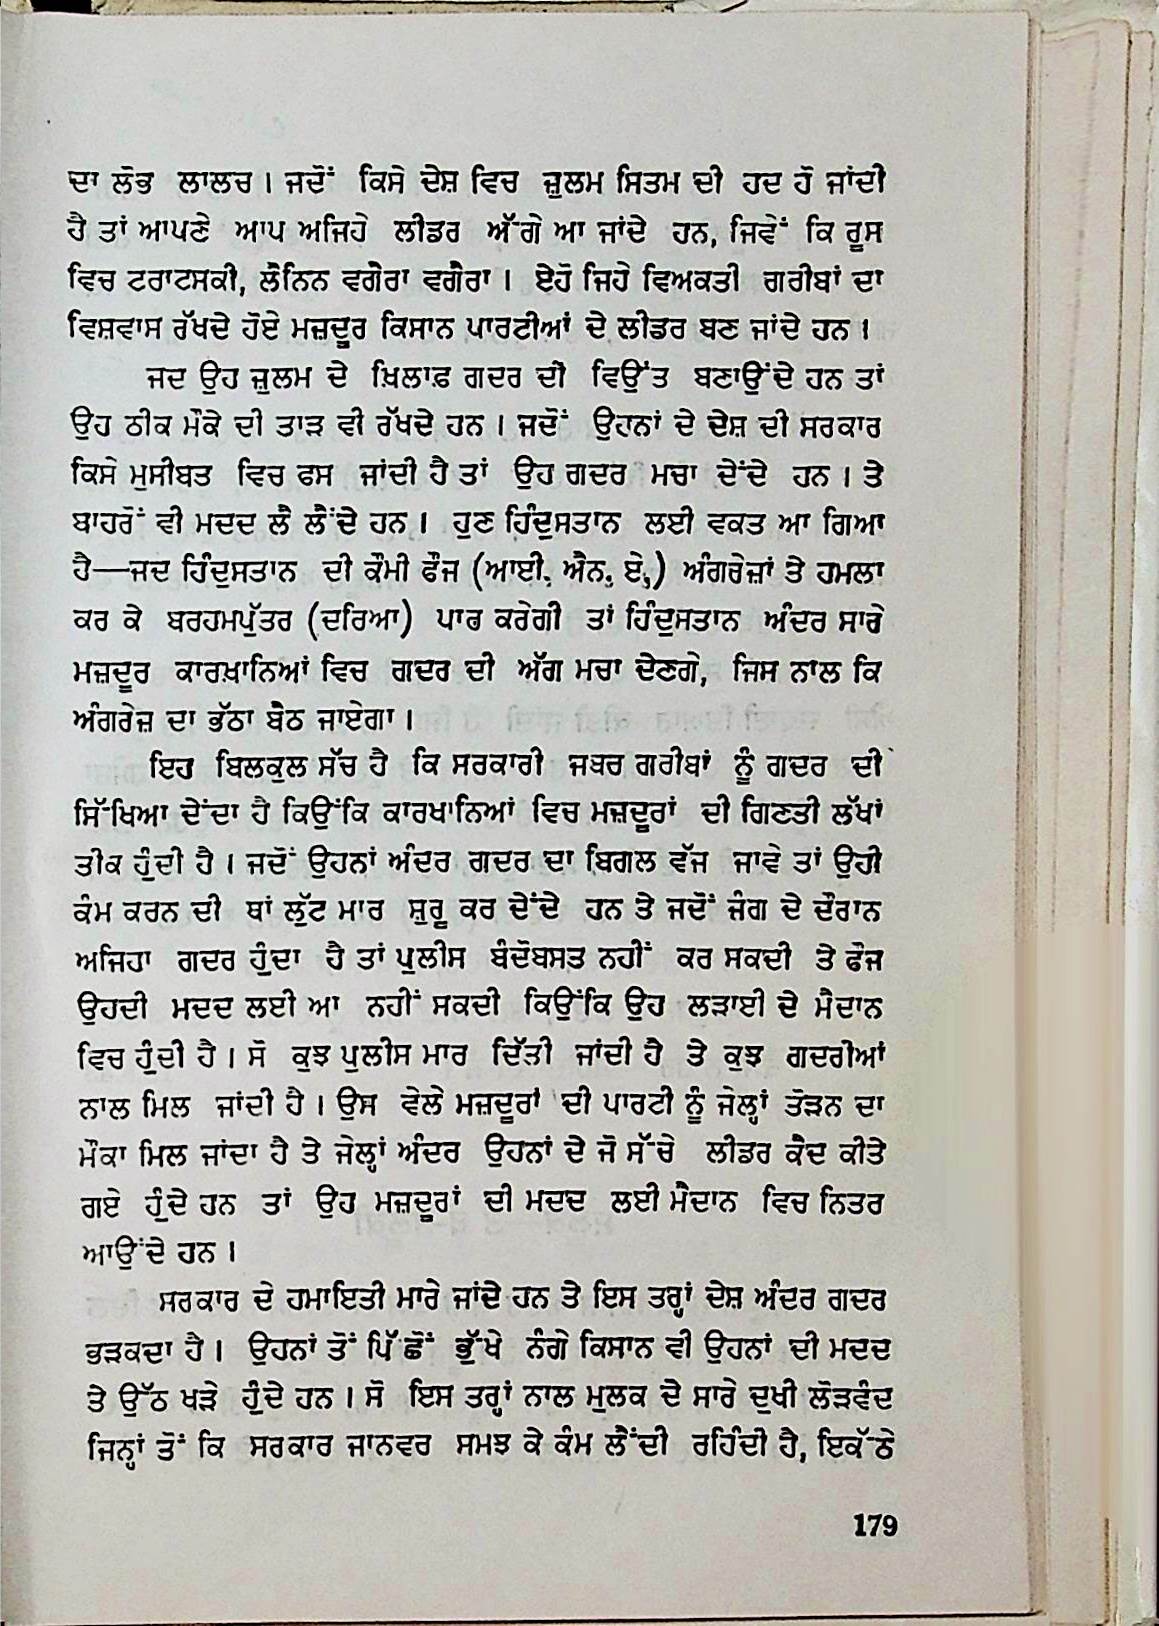 ਦਾ ਲੋਭ ਲਾਲਚ। ਜਦੋਂ ਕਿਸੇ ਦੇਸ਼ ਵਿਚ ਜ਼ੁਲਮ ਸਿਤਮ ਦੀ ਹਦ ਹੋ ਜਾਂਦੀ
ਹੈ ਤਾਂ ਆਪਣੇ ਆਪ ਅਜਿਹੇ ਲੀਡਰ ਅੱਗੇ ਆ ਜਾਂਦੇ ਹਨ, ਜਿਵੇਂ ਕਿ ਰੂਸ
ਵਿਚ ਟਰਾਟਸਕੀ, ਲੈਨਿਨ ਵਗੈਰਾ ਵਗੈਰਾ। ਏਹੋ ਜਿਹੇ ਵਿਅਕਤੀ ਗਰੀਬਾਂ ਦਾ
ਵਿਸ਼ਵਾਸ ਰੱਖਦੇ ਹੋਏ ਮਜ਼ਦੂਰ ਕਿਸਾਨ ਪਾਰਟੀਆਂ ਦੇ ਲੀਡਰ ਬਣ ਜਾਂਦੇ ਹਨ।
ਜਦ ਉਹ ਜ਼ੁਲਮ ਦੇ ਖ਼ਿਲਾਫ਼ ਗਦਰ ਦੀ ਵਿਉਂਤ ਬਣਾਉਂਦੇ ਹਨ ਤਾਂ
ਉਹ ਠੀਕ ਮੌਕੇ ਦੀ ਤਾੜ ਵੀ ਰੱਖਦੇ ਹਨ। ਜਦੋਂ ਉਹਨਾਂ ਦੇ ਦੇਸ਼ ਦੀ ਸਰਕਾਰ
ਕਿਸੇ ਮੁਸੀਬਤ ਵਿਚ ਫਸ ਜਾਂਦੀ ਹੈ ਤਾਂ ਉਹ ਗਦਰ ਮਚਾ ਦੇਂਦੇ ਹਨ। ਤੇ
ਬਾਹਰੋਂ ਵੀ ਮਦਦ ਲੈ ਲੈਂਦੇ ਹਨ। ਹੁਣ ਹਿੰਦੁਸਤਾਨ ਲਈ ਵਕਤ ਆ ਗਿਆ
ਹੈ—ਜਦ ਹਿੰਦੁਸਤਾਨ ਦੀ ਕੌਮੀ ਫੌਜ (ਆਈ. ਐਨ. ਏ.) ਅੰਗਰੇਜ਼ਾਂ ਤੇ ਹਮਲਾ
ਕਰ ਕੇ ਬਰਹਮਪੁੱਤਰ (ਦਰਿਆ) ਪਾਰ ਕਰੇਗੀ ਤਾਂ ਹਿੰਦੁਸਤਾਨ ਅੰਦਰ ਸਾਰੇ
ਮਜ਼ਦੂਰ ਕਾਰਖ਼ਾਨਿਆਂ ਵਿਚ ਗਦਰ ਦੀ ਅੱਗ ਮਚਾ ਦੇਣਗੇ, ਜਿਸ ਨਾਲ ਕਿ
ਅੰਗਰੇਜ਼ ਦਾ ਭੱਠਾ ਬੈਠ ਜਾਏਗਾ।
ਇਹ ਬਿਲਕੁਲ ਸੱਚ ਹੈ ਕਿ ਸਰਕਾਰੀ ਜਬਰ ਗਰੀਬਾਂ ਨੂੰ ਗਦਰ ਦੀ
ਸਿੱਖਿਆ ਦੇਂਦਾ ਹੈ ਕਿਉਂਕਿ ਕਾਰਖਾਨਿਆਂ ਵਿਚ ਮਜ਼ਦੂਰਾਂ ਦੀ ਗਿਣਤੀ ਲੱਖਾਂ
ਤੀਕ ਹੁੰਦੀ ਹੈ। ਜਦੋਂ ਉਹਨਾਂ ਅੰਦਰ ਗਦਰ ਦਾ ਬਿਗਲ ਵੱਜ ਜਾਵੇ ਤਾਂ ਉਹੀ
ਕੰਮ ਕਰਨ ਦੀ ਥਾਂ ਲੁੱਟ ਮਾਰ ਸ਼ੁਰੂ ਕਰ ਦੇਂਦੇ ਹਨ ਤੇ ਜਦੋਂ ਜੰਗ ਦੇ ਦੌਰਾਨ
ਅਜਿਹਾ ਗਦਰ ਹੁੰਦਾ ਹੈ ਤਾਂ ਪੁਲੀਸ ਬੰਦੋਬਸਤ ਨਹੀਂ ਕਰ ਸਕਦੀ ਤੇ ਫੌਜ
ਉਹਦੀ ਮਦਦ ਲਈ ਆ ਨਹੀਂ ਸਕਦੀ ਕਿਉਂਕਿ ਉਹ ਲੜਾਈ ਦੇ ਮੈਦਾਨ
ਵਿਚ ਹੁੰਦੀ ਹੈ। ਸੋ ਕੁਝ ਪੁਲੀਸ ਮਾਰ ਦਿੱਤੀ ਜਾਂਦੀ ਹੈ ਤੇ ਕੁਝ ਗਦਰੀਆਂ
ਨਾਲ ਮਿਲ ਜਾਂਦੀ ਹੈ। ਉਸ ਵੇਲੇ ਮਜ਼ਦੂਰਾਂ ਦੀ ਪਾਰਟੀ ਨੂੰ ਜੇਲ੍ਹਾਂ ਤੋੜਨ ਦਾ
ਮੌਕਾ ਮਿਲ ਜਾਂਦਾ ਹੈ ਤੇ ਜੇਲ੍ਹਾਂ ਅੰਦਰ ਉਹਨਾਂ ਦੇ ਜੋ ਸੱਚੇ ਲੀਡਰ ਕੈਦ ਕੀਤੇ
ਗਏ ਹੁੰਦੇ ਹਨ ਤਾਂ ਉਹ ਮਜ਼ਦੂਰਾਂ ਦੀ ਮਦਦ ਲਈ ਮੈਦਾਨ ਵਿਚ ਨਿਤਰ
ਆਉਂਦੇ ਹਨ।
ਸਰਕਾਰ ਦੇ ਹਮਾਇਤੀ ਮਾਰੇ ਜਾਂਦੇ ਹਨ ਤੇ ਇਸ ਤਰ੍ਹਾਂ ਦੇਸ਼ ਅੰਦਰ ਗਦਰ
ਭੜਕਦਾ ਹੈ। ਉਹਨਾਂ ਤੋਂ ਪਿੱਛੋਂ ਭੁੱਖੇ ਨੰਗੇ ਕਿਸਾਨ ਵੀ ਉਹਨਾਂ ਦੀ ਮਦਦ
ਤੇ ਉੱਠ ਖੜੇ ਹੁੰਦੇ ਹਨ। ਸੋ ਇਸ ਤਰ੍ਹਾਂ ਨਾਲ ਮੁਲਕ ਦੇ ਸਾਰੇ ਦੁਖੀ ਲੋੜਵੰਦ
ਜਿਨ੍ਹਾਂ ਤੋਂ ਕਿ ਸਰਕਾਰ ਜਾਨਵਰ ਸਮਝ ਕੇ ਕੰਮ ਲੈਂਦੀ ਰਹਿੰਦੀ ਹੈ, ਇਕੱਠੇ
179